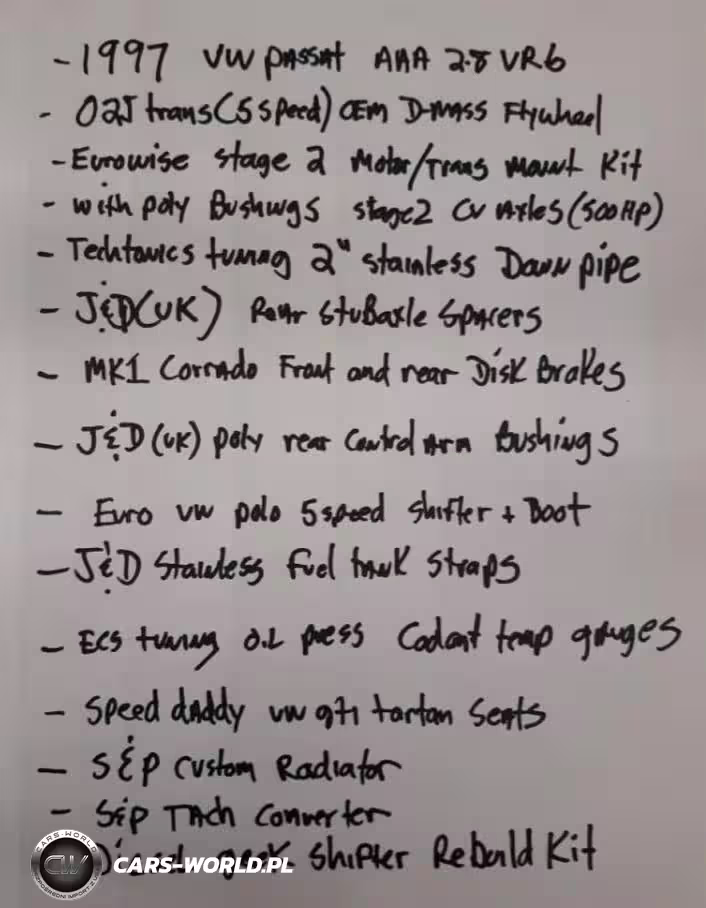 - 1997 VW PASSAt AAA 2.8 VR6
- 02J trans(5 speed) OEM D-mass Flywheel
- Eurowise stage 2 Motor/Trans mount Kit
- with poly Bushings stage2 CV Axles (500HP)
- Techtonics tuning 2" stainless Down pipe
- J&D(UK) Rear stuBaxle Spacers
- MK1 Corrado Front and rear Disk Brakes
- J&D (UK) poly rear Control Arm Bushings
- Euro vw polo 5 speed shifter + Boot
- J&D Stainless fuel tank straps
- ECS tuning oil press Coolant temp gauges
- Speed daddy vw gti tartan seats
- S&P Custom Radiator
- S&P TAch Converter
Shifter Rebuild Kit
CARS-WORLD
CW
CARS-WORLD.PL